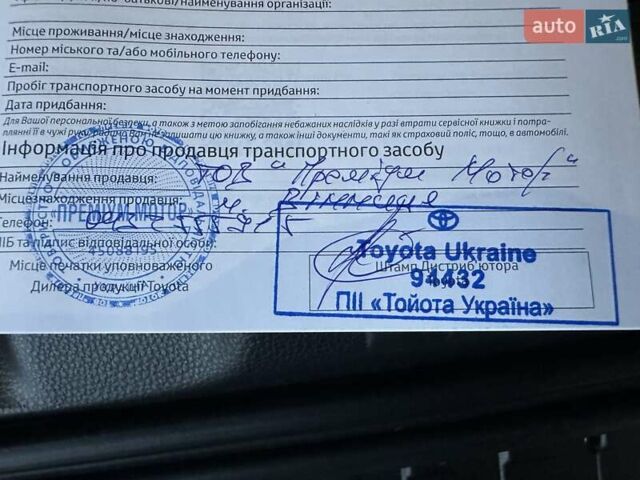 auto RIA.com
по-батькові/найменування організації:
Місце проживання/місце знаходження:
Номер міського та/або мобільного телефону:
E-mail:
Пробіг транспортного засобу на момент придбання:
Дата придбання:
Для Вашої персональної безпеки, а також з метою запобігання небажаних наслідків у разі втрати сервісної книжки і потра-
плянні її в чужі руки, Вам залишати цю книжку, а також інші документи, такі як страховий поліс, тощо, в автомобілі.
Інформація про продавця транспортного засобу
Найменування продавця: ТОВ "Преміум Мотор"
Місцезнаходження продавця: м. Вінниця
Телефон:
«ПРЕМІУМ МОТОР»
ПІБ та підпис відповідальної особи
45098195
Місце печатки уповноваженого
Штамп Дистриб'ютора
Дилера продукції Toyota
Toyota Ukraine
94432
ПІІ «Тойота Україна»